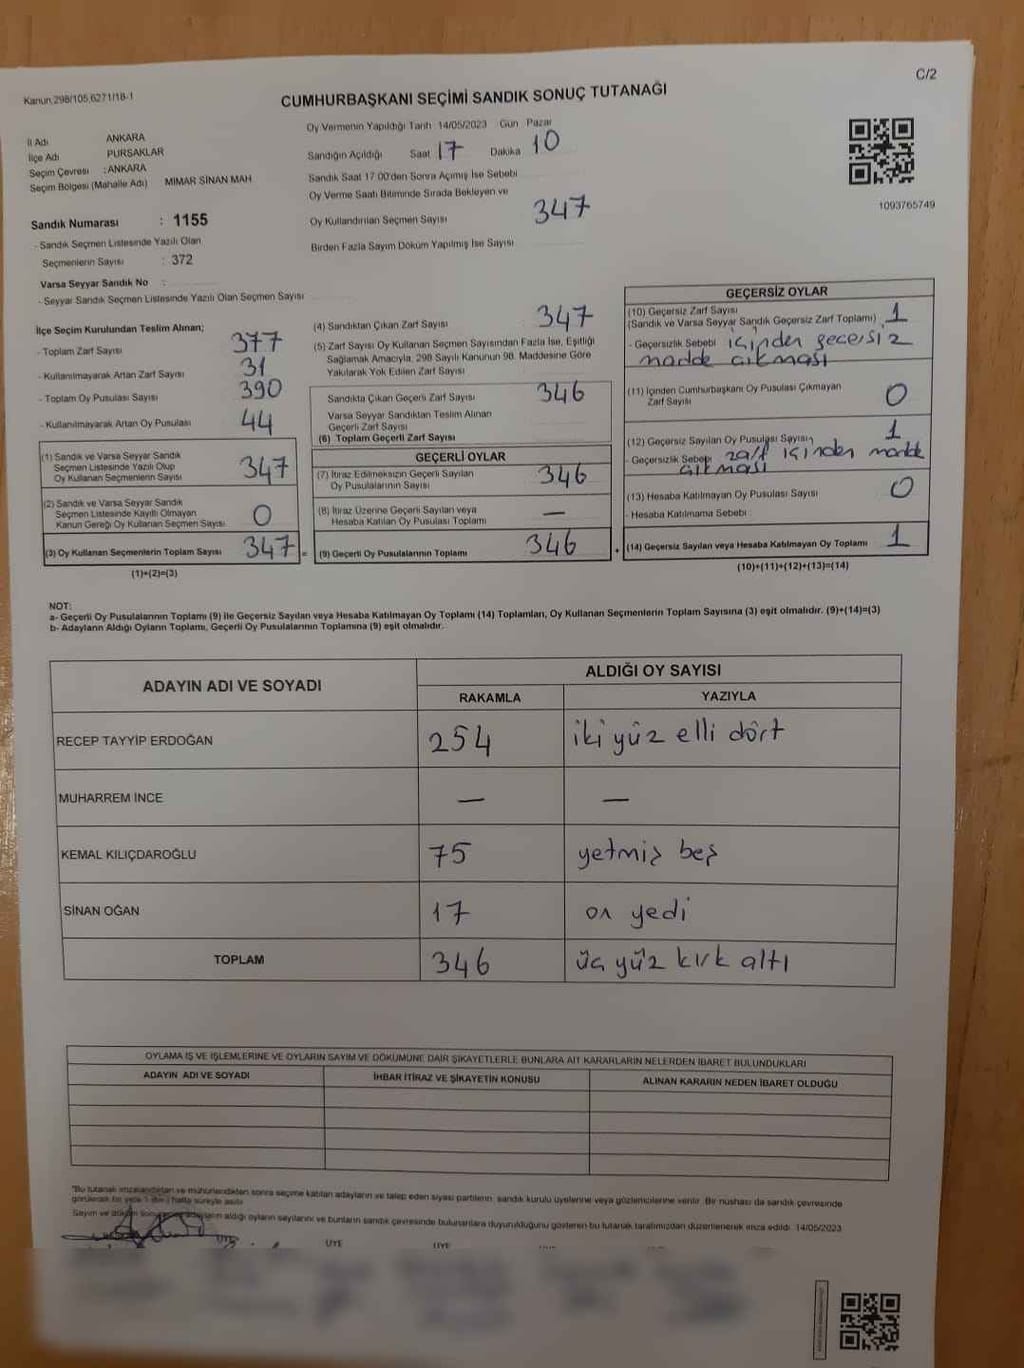 C/2
Kanun,298/105,6271/18-1
CUMHURBAŞKANI SEÇİMİ SANDIK SONUÇ TUTANAĞI
İl Adı ANKARA
İlçe Adı PURSAKLAR
Seçim Çevresi : ANKARA
Seçim Bölgesi (Mahalle Adı) MİMAR SİNAN MAH
Sandık Numarası : 1155
- Sandık Seçmen Listesinde Yazılı Olan
Seçmenlerin Sayısı : 372
Varsa Seyyar Sandık No :
- Seyyar Sandık Seçmen Listesinde Yazılı Olan Seçmen Sayısı
Oy Vermenin Yapıldığı Tarih 14/05/2023 Gün Pazar
Sandığın Açıldığı Saat 17 Dakika 10
Sandık Saat 17:00'den Sonra Açımış İse Sebebi
Oy Verme Saati Bitiminde Sırada Bekleyen ve
Oy Kullandırılan Seçmen Sayısı 347
Birden Fazla Sayım Döküm Yapılmış İse Sayısı
1093765749
İlçe Seçim Kurulundan Teslim Alınan;
- Toplam Zarf Sayısı 377
- Kullanılmayarak Artan Zarf Sayısı 31
- Toplam Oy Pusulası Sayısı 390
- Kullanılmayarak Artan Oy Pusulası 44
(1) Sandık ve Varsa Seyyar Sandık
Seçmen Listesinde Yazılı Olup
Oy Kullanan Seçmenlerin Sayısı 347
(2) Sandık ve Varsa Seyyar Sandık
Seçmen Listesinde Kayıtlı Olmayan
Kanun Gereği Oy Kullanan Seçmen Sayısı 0
(3) Oy Kullanan Seçmenlerin Toplam Sayısı 347 =
(1)+(2)=(3)
(4) Sandıktan Çıkan Zarf Sayısı 347
(5) Zarf Sayısı Oy Kullanan Seçmen Sayısından Fazla İse, Eşitliği
Sağlamak Amacıyla, 298 Sayılı Kanunun 98. Maddesine Göre
Yakılarak Yok Edilen Zarf Sayısı
Sandıkta Çıkan Geçerli Zarf Sayısı 346
Varsa Seyyar Sandıktan Teslim Alınan
Geçerli Zarf Sayısı
(6) Toplam Geçerli Zarf Sayısı
GEÇERLİ OYLAR
(7) İtiraz Edilmeksizin Geçerli Sayılan
Oy Pusulalarının Sayısı 346
(8) İtiraz Üzerine Geçerli Sayılan veya
Hesaba Katılan Oy Pusulası Toplamı —
(9) Geçerli Oy Pusulalarının Toplamı 346 +
GEÇERSİZ OYLAR
(10) Geçersiz Zarf Sayısı
(Sandık ve Varsa Seyyar Sandık Geçersiz Zarf Toplamı) 1
- Geçersizlik Sebebi içinden gecersiz
madde çıkması
(11) İçinden Cumhurbaşkanı Oy Pusulası Çıkmayan
Zarf Sayısı 0
(12) Geçersiz Sayılan Oy Pusulası Sayısı 1
- Geçersizlik Sebebi zarf içinden madde
çıkması
(13) Hesaba Katılmayan Oy Pusulası Sayısı 0
- Hesaba Katılmama Sebebi
(14) Geçersiz Sayılan veya Hesaba Katılmayan Oy Toplamı 1
(10)+(11)+(12)+(13)=(14)
NOT:
a- Geçerli Oy Pusulalarının Toplamı (9) ile Geçersiz Sayılan veya Hesaba Katılmayan Oy Toplamı (14) Toplamları, Oy Kullanan Seçmenlerin Toplam Sayısına (3) eşit olmalıdır. (9)+(14)=(3)
b- Adayların Aldığı Oyların Toplamı, Geçerli Oy Pusulalarının Toplamına (9) eşit olmalıdır.
ADAYIN ADI VE SOYADI ALDIĞI OY SAYISI
RAKAMLA YAZIYLA
RECEP TAYYİP ERDOĞAN 254 iki yüz elli dört
MUHARREM İNCE — —
KEMAL KILIÇDAROĞLU 75 yetmiş beş
SİNAN OĞAN 17 on yedi
TOPLAM 346 üç yüz kırk altı
OYLAMA İŞ VE İŞLEMLERİNE VE OYLARIN SAYIM VE DÖKÜMÜNE DAİR ŞİKAYETLERLE BUNLARA AİT KARARLARIN NELERDEN İBARET BULUNDUKLARI
ADAYIN ADI VE SOYADI İHBAR İTİRAZ VE ŞİKAYETİN KONUSU ALINAN KARARIN NEDEN İBARET OLDUĞU
"Bu tutanak imzalandıktan ve mühürlendikten sonra seçime katılan adayların ve talep eden siyasi partilerin, sandık kurulu üyelerine veya gözlemcilerine verilir. Bir nüshası da sandık çevresinde
görülecek bir yere 1 (bir) hafta süreyle asılır.
Sayım ve döküm adayların aldığı oyların sayılarını ve bunların sandık çevresinde bulunanlara duyurulduğunu gösteren bu tutanak tarafımızdan düzenlenerek imza edildi. 14/05/2023
ÜYE ÜYE